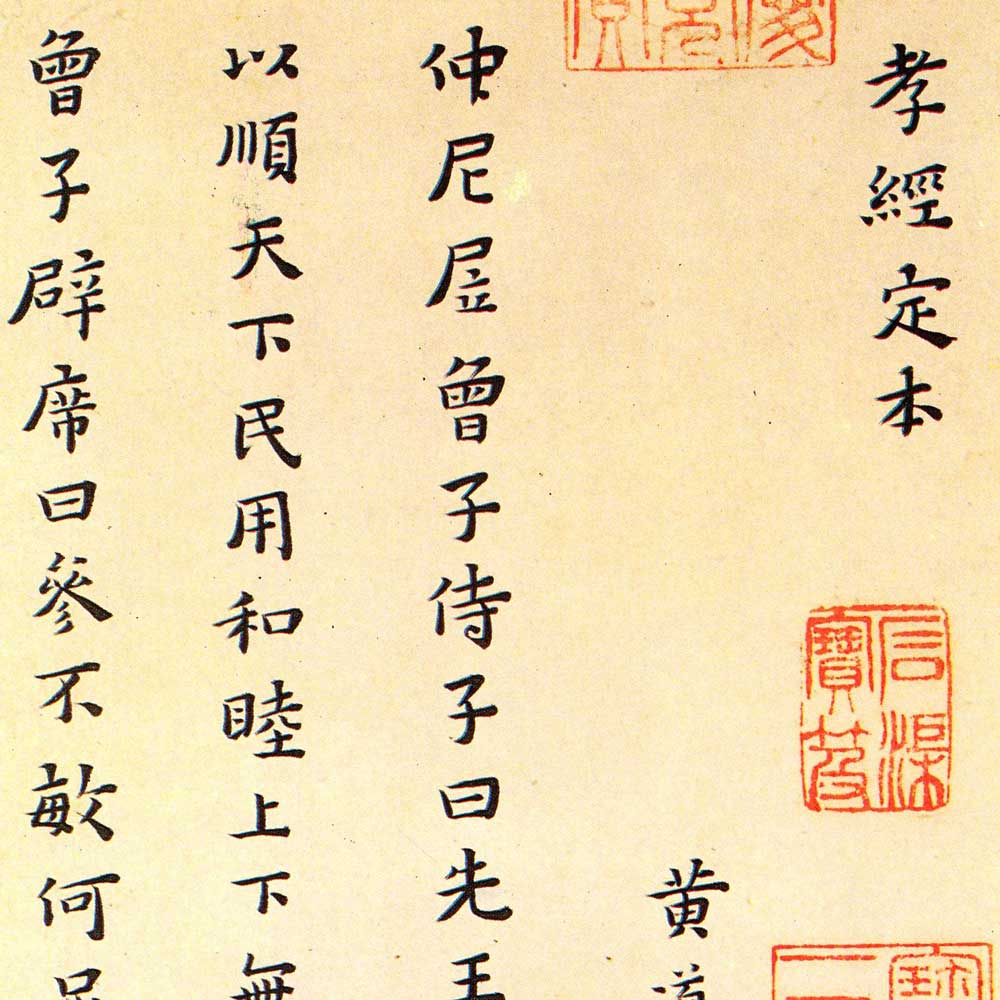 孝經定本
黄道
仲尼凥曾子侍子曰先王
以順天下民用和睦上下無
曾子辟席曰參不敏何足